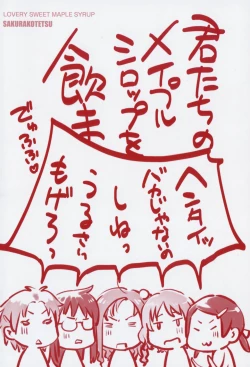 LOVERY SWEET MAPLE SYRUP
SAKURAKOTETSU
君たちの
メイプル
シロップを
飲ま
でゅふふふ♡
ヘンタイッ
バカじゃないの
しねっ
うるさい
もげろっ